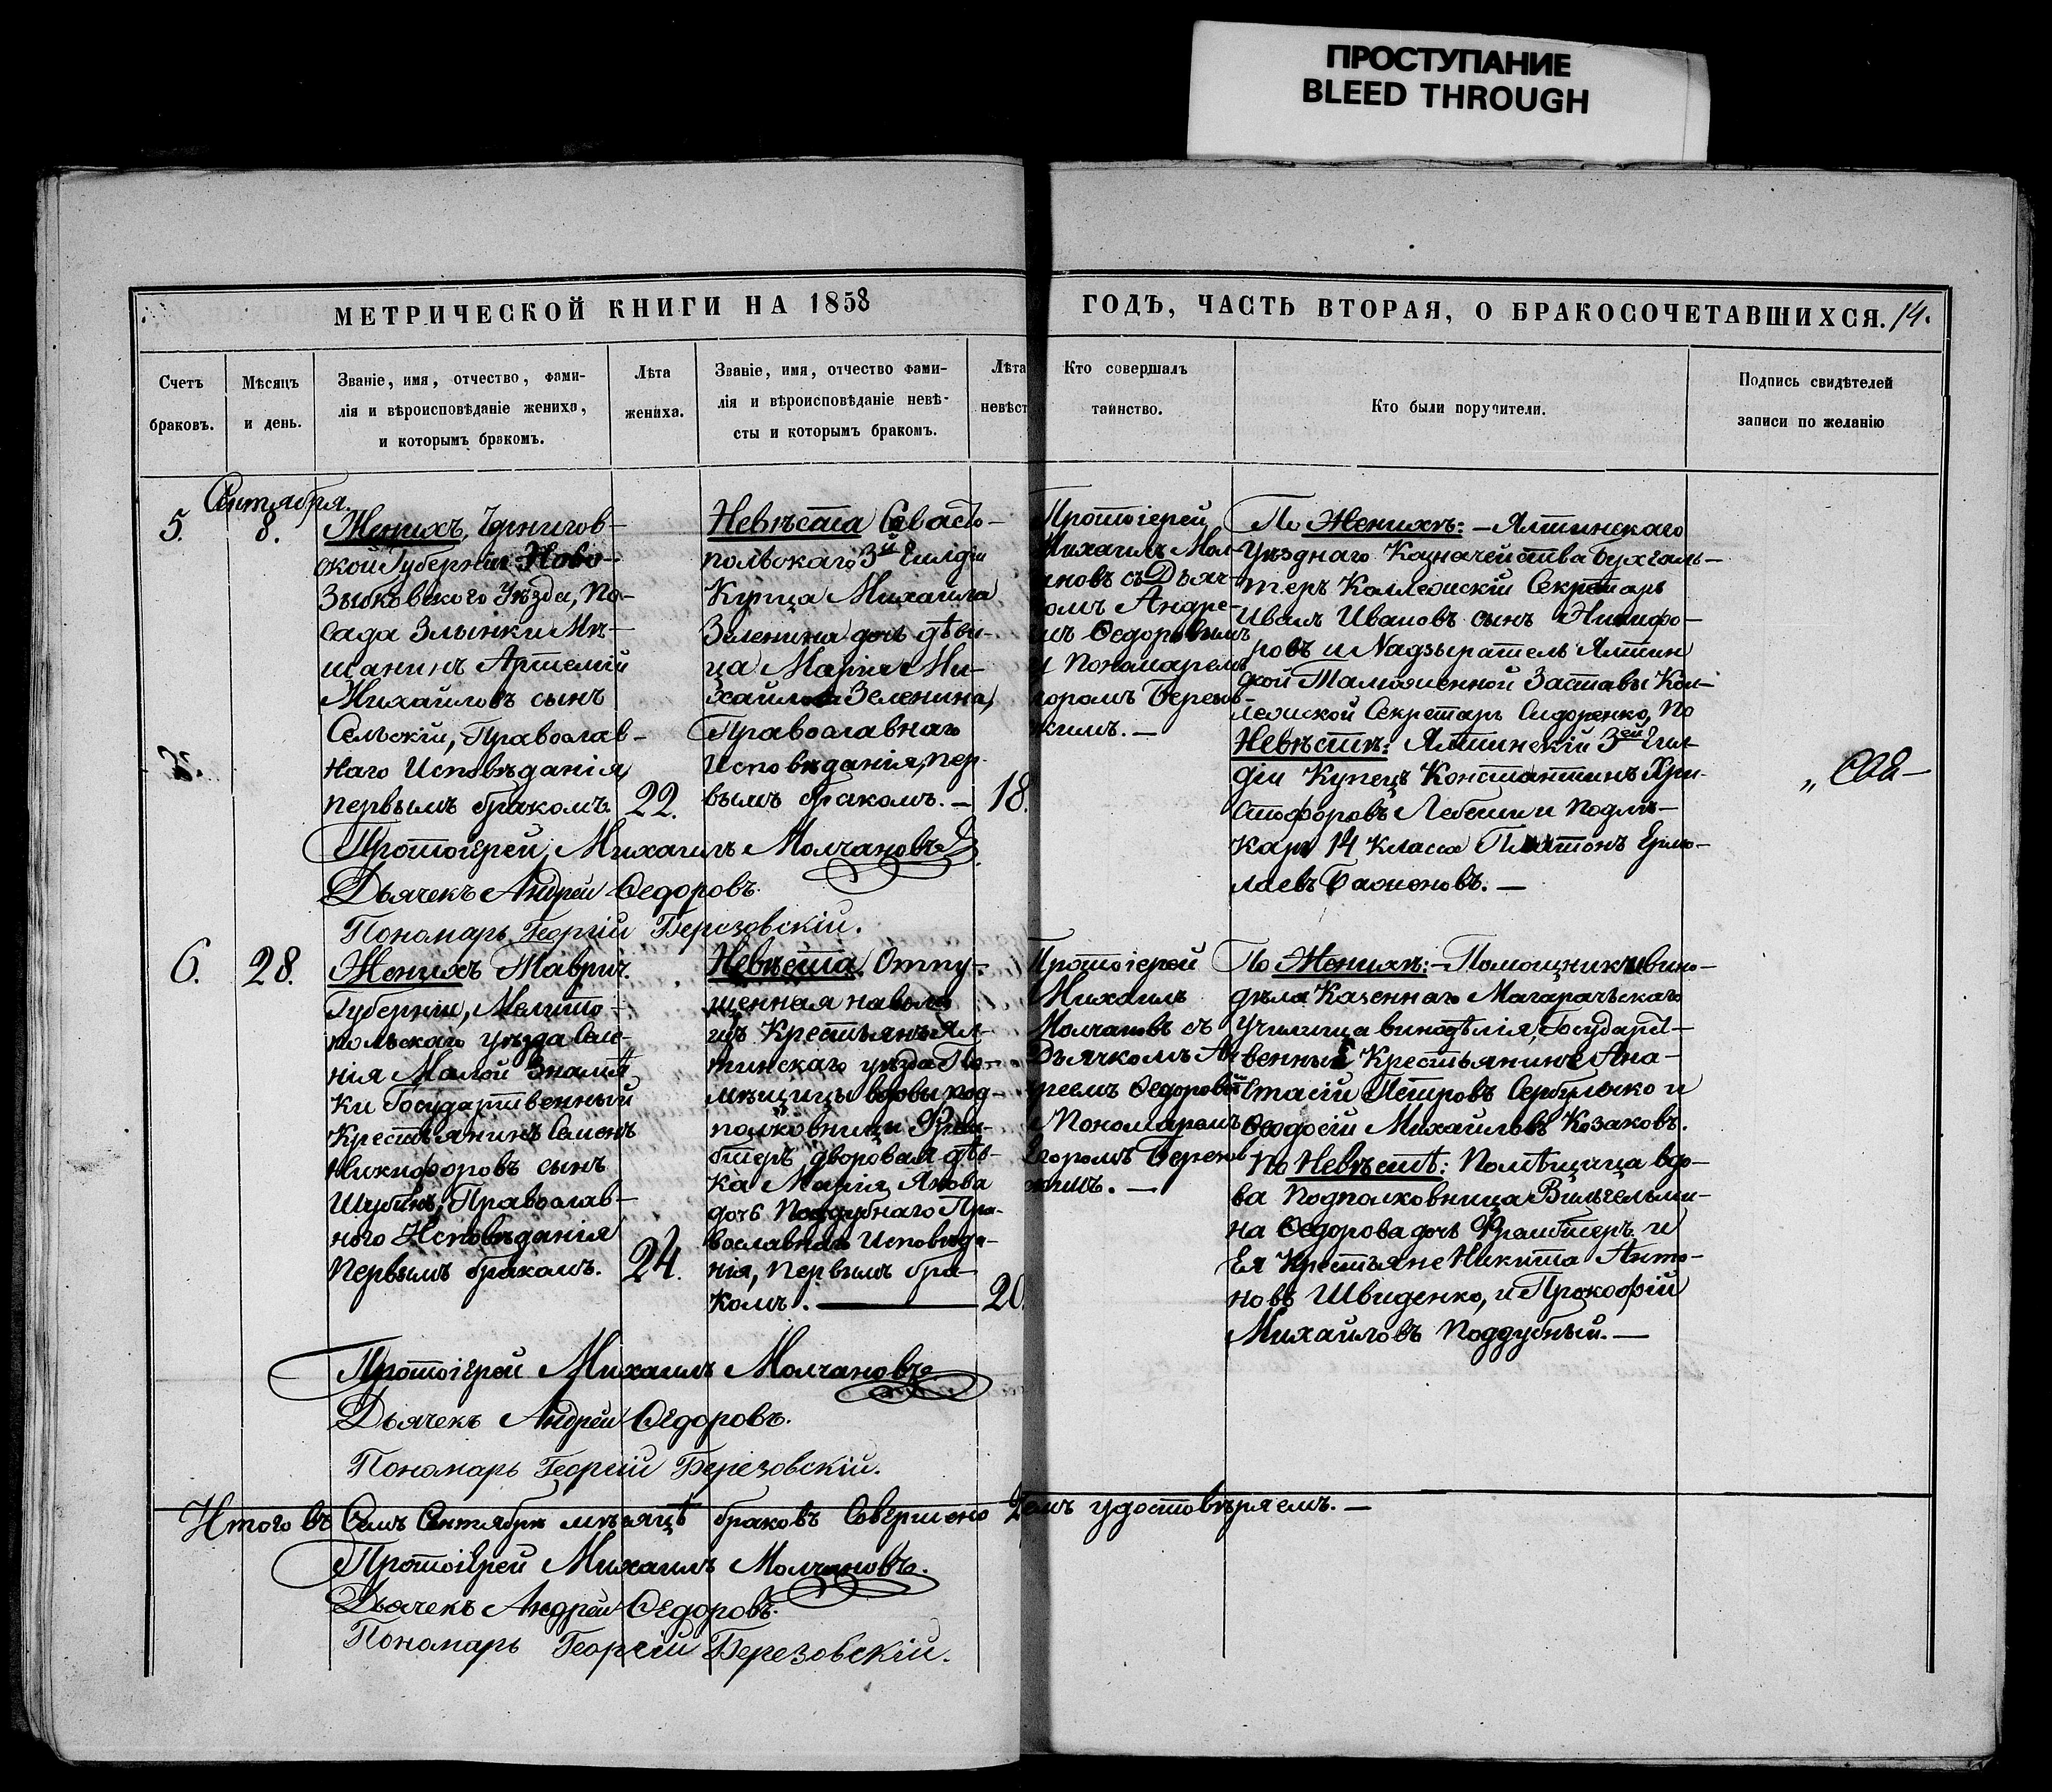 ПРОСТУПАНИЕ
BLEED THROUGH
МЕТРИЧЕСКОЙ КНИГИ НА 1858
ГОДЪ, ЧАСТЬ ВТОРАЯ, О БРАКОСОЧЕТАВШИХСЯ. 14.
Счетъ
браковъ.
Мѣсяцъ
и день.
Званіе, имя, отчество, фами-
лія и вѣроисповѣданіе жениха,
и которымъ бракомъ.
Лѣта
жениха.
Званіе, имя, отчество фами-
лія и вѣроисповѣданіе невѣ-
сты и которымъ бракомъ.
Лѣта
невѣст
Кто совершалъ
таинство.
Кто были поручители.
Подпись свидѣтелей
записи по желанію
Сентября.
5.
8.
Женихъ, Чернигов-
ской Губерніи Ново-
Зыбковского Уѣзда, По-
сада Злынки Мѣ-
щанинъ Артемій
Михайловъ сынъ
Сельскій, Православ-
наго Исповѣданія,
первымъ бракомъ.
22.
Невѣста Севасто-
польскаго 3й Гилдіи
Купца Михаила
Зеленина дочь дѣви-
ца Марія Ми-
хайлова Зеленина,
Православнаго
Исповѣданія, пер-
вымъ бракомъ. —
18.
Протоіерей
Михаилъ Мол-
чановъ съ Дьяч-
комъ Андре-
емъ Ѳедоровымъ
и Пономаремъ
горомъ Березов-
скимъ. —
По Женихѣ: — Ялтинскаго
Уѣзднаго Казначейства Бухгаль-
теръ Коллежскій Секретарь
Иванъ Ивановъ сынъ Никифо-
ровъ и Надзыратель Ялтин
ской Таможенной Заставы Кол-
лежской Секретарь Сидоренко, По
Невѣстѣ: Ялтинскій 3ей Гил-
діи Купецъ Константинъ Хри-
стофоровъ и Подлѣ-
карь 14 класса Платонъ Ермо-
лаевъ —
Протоіерей Михаилъ Молчановъ.
Дьячекъ Андрей Ѳедоровъ.
Пономарь Георгій Березовскій.
6.
28.
Женихъ Таврич.
Губерніи, Мелито-
польскаго уѣзда Селе-
нія Малой Знамѣ-
ки Государственный
Крестьянинъ Семенъ
Никифоровъ сынъ
Шубинъ, Православ-
ного Исповѣданія
Первымъ бракомъ.
24.
Невѣста, Отпу-
щенная наволю
изъ Крестьянъ Ял-
тинскаго уѣзда По-
мѣщицы вдовы под-
полковницы
дворовая дѣв-
ка Марія Якова
дочь Поддубнаго Пра-
вославнаго Исповѣда-
нія, первымъ бра-
комъ. —
20.
Протоіерей
Михаилъ
Молчановъ съ
Дьячкомъ Ан
дреемъ Ѳедоровы
и Пономаремъ
Егоромъ Березов
скимъ. —
По Женихѣ: — Помощникъ вино-
дѣла Казеннаго Магарачьскаго
Училища винодѣлія, Государст-
венный Крестьянинъ Ана-
стасій Петровъ и
Ѳеодосій Михайловъ Козаковъ.
По Невѣстѣ: Помѣщица вдо-
ва Подполковница Вильгельми-
на Ѳедорова дочь и
Ея Крестьяне Никита Анто-
новъ Швиденко, и Прокофій
Михайловъ Поддубный. —
Протоіерей Михаилъ Молчановъ
Дьячекъ Андрей Ѳедоровъ.
Пономарь Георгій Березовскій.
Итого въ Семъ Сентябрѣ мѣсяцѣ браковъ Совершено 2. удостовѣряемъ. —
Протоіерей Михаилъ Молчановъ.
Дьячекъ Андрей Ѳедоровъ.
Пономарь Георгій Березовскій.